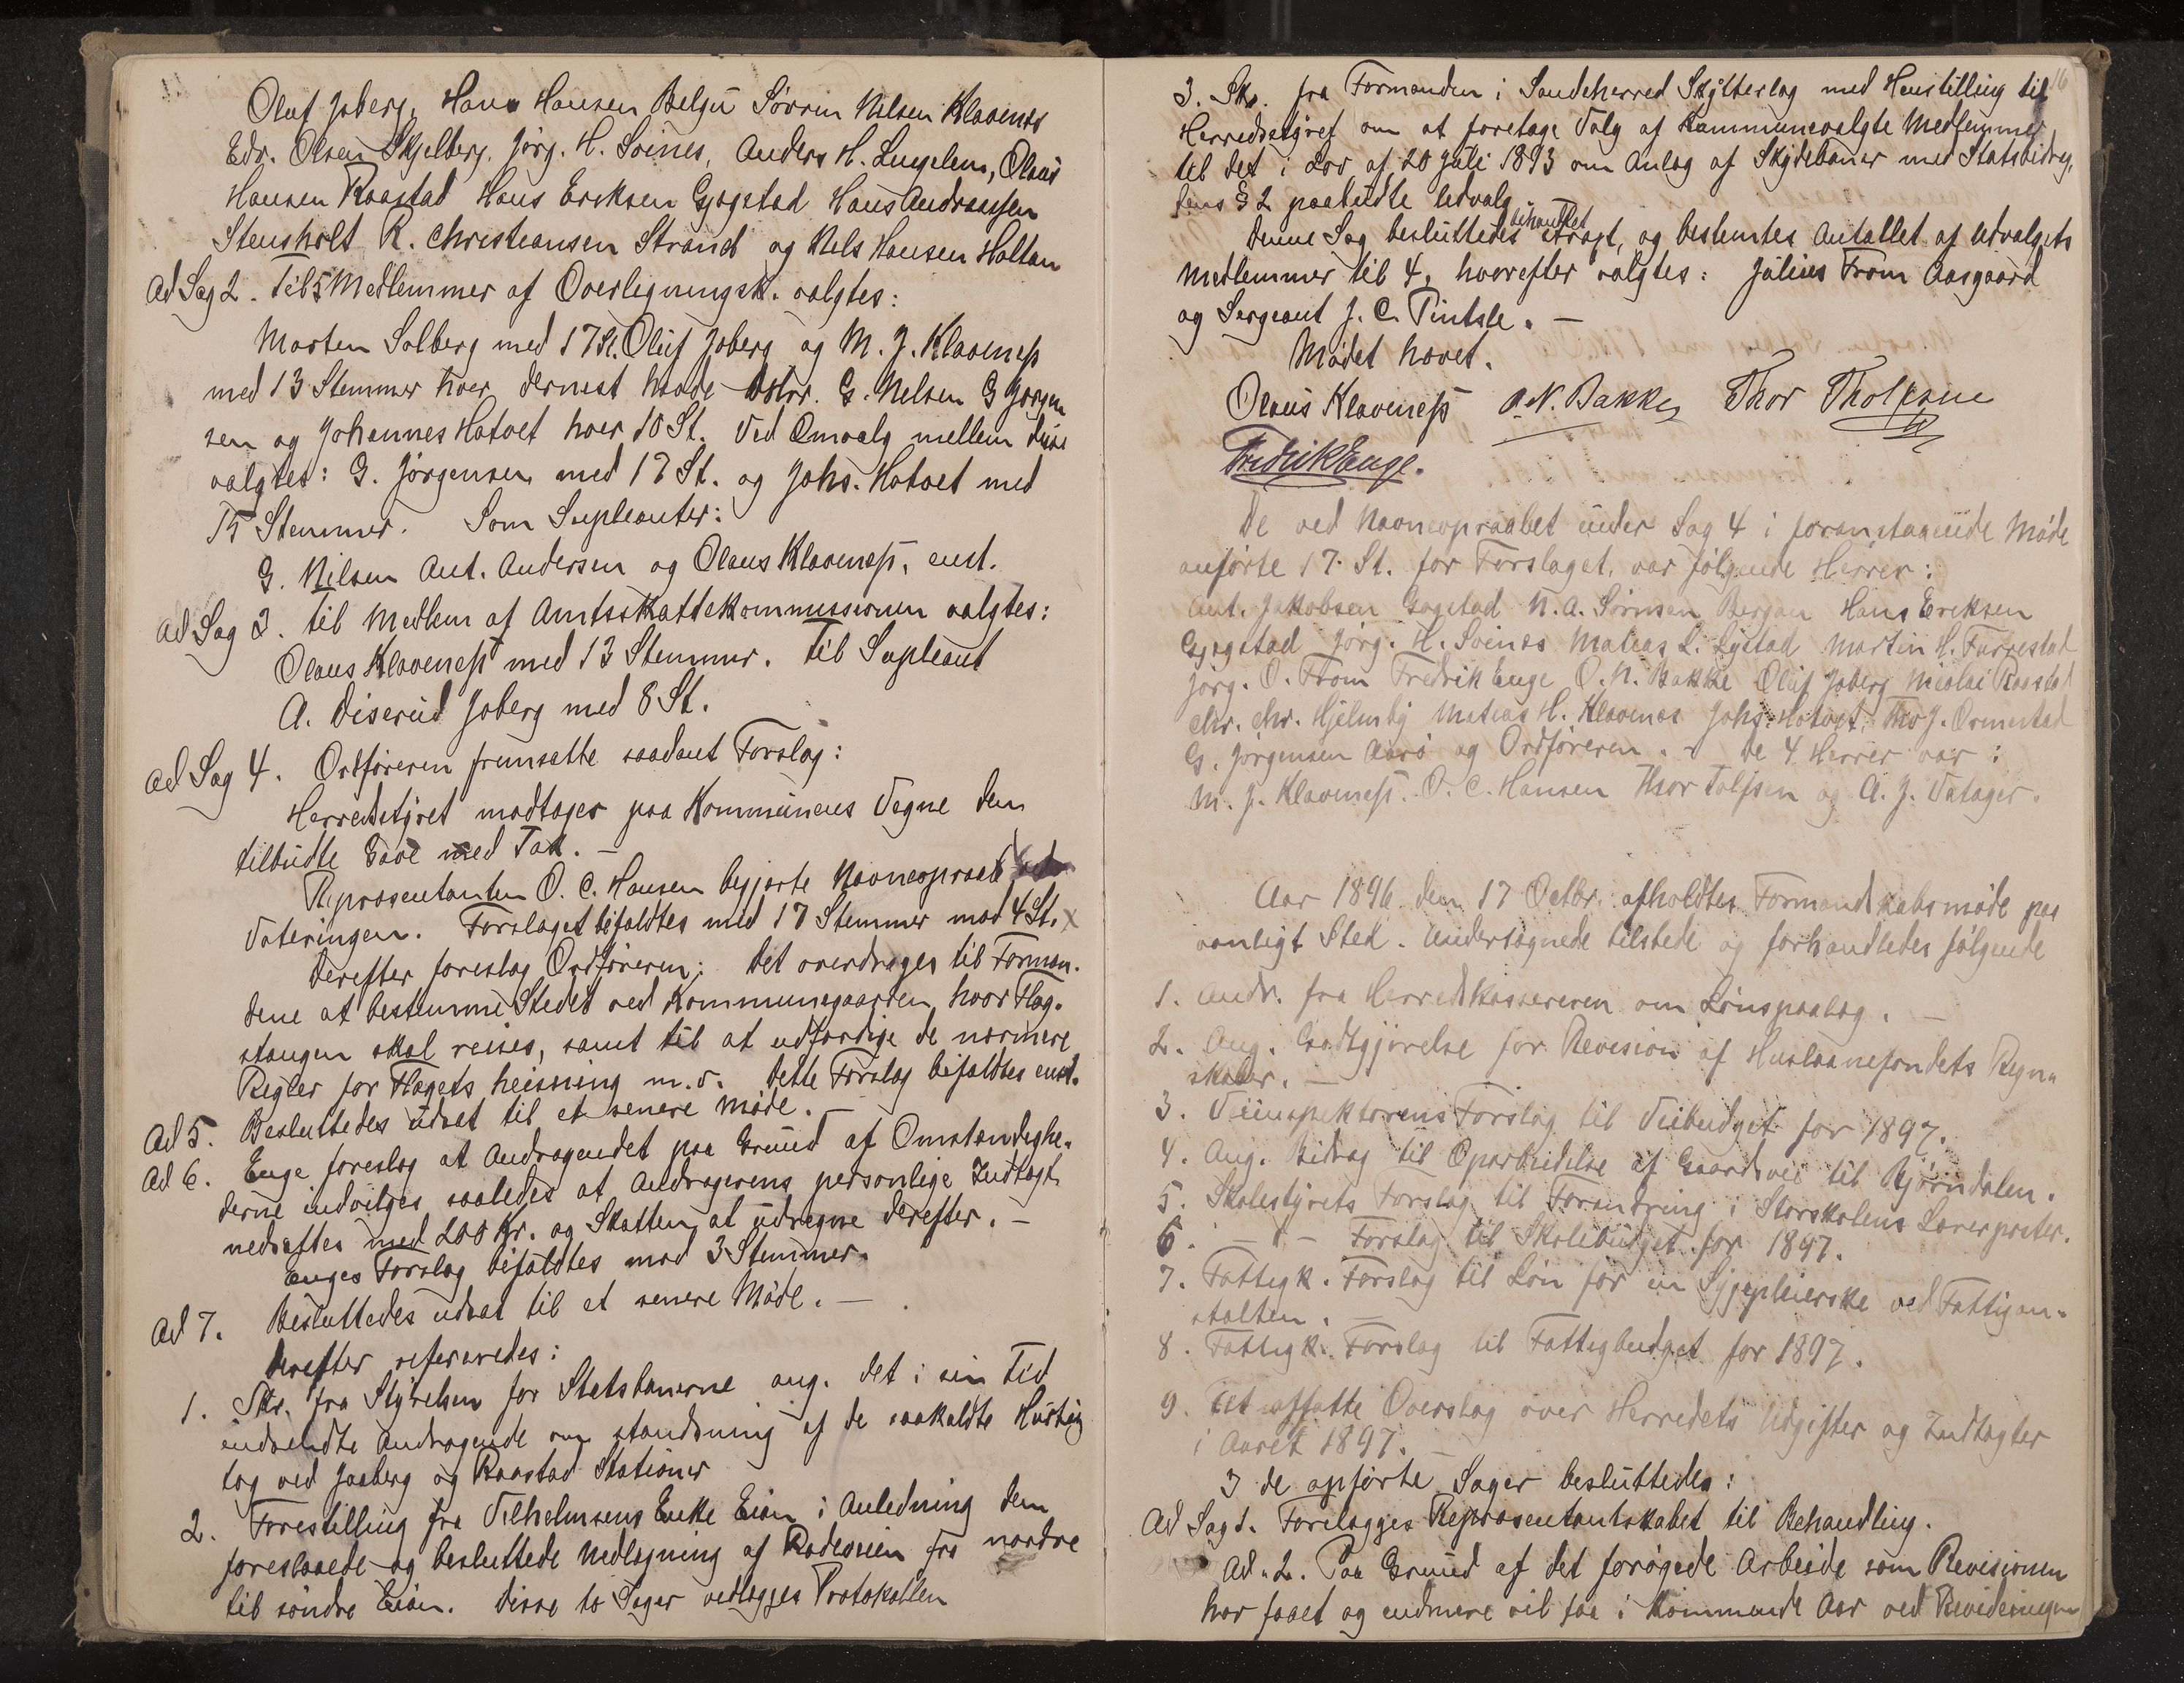 Oluf Joberg, Hans Hansen Belgu Sørren Nilsen Klavenes
Edv. Olsen Skjelberg, Jørg. H. Svines, Anders H. Lingelem, Olaus
Hansen Raastad Hans Eriksen Gjøgstad Hans Andreassen
Stensholt R. Christiansen Strand og Nels Hansen Haltan
Ad Sag 2. Til 5 Medlemmer af Overligningsk. valgtes:
Morten Solberg med 17 St. Oluf Joberg og M. J. Klavenesz
med 13 Stemmer hver dernest havde G. Nelsen G Jørgen
sen og Johannes Hotvet hver 10 St. Ved Omvalg mellem disse
valgtes: G. Jørgensen med 17 St. og Johs. Hotvet med
15 Stemmer. Som Supleanter:
G. Nilsen Ant. Andersen og Olaus Klavenesz, enst.
Ad Sag 3. til Medlem af Amtsskattekommissionen valgtes:
Olaus Klavenesz med 13 Stemmer. Til Supleant
A. Diserud Joberg med 8 St.
Ad Sag 4. Ordføreren fremsatte saadant Forslag:
Herredstyret modtager paa Kommunens Vegne den
tilbudte Gave med Tak. —
Repræsentanten O. C. Hansen begjærte Navneopraab ved
Voteringen. Forslaget bifaldtes med 17 Stemmer mod 4 St. x
Derefter foreslog Ordføreren: Det overdrages til Forman-
dene at bestemme Stedet ved Kommunegaarden, hvor Flag-
stangen skal reises, samt til at udfærdige de nærmere
Regler for Flagets heisning m. v. Dette Forslag bifaldtes enst.
Ad 5. Besluttedes udsat til et senere Møde. —
Ad 6. Enge foreslog at Andragendet paa Grund af Omstændighe-
derne indvilges saaledes at Andragerens personlige Indtægt
nedsættes med 200 Kr. og Skatten at udregne derefter. —
Enges Forslag bifaldtes mod 3 Stemmer.
Ad 7. Besluttedes udsat til et senere Møde. —
Derefter refereredes:
1. Skr. fra Styrelsen for Statsbanerne ang. det i sin Tid
indsendte Andragende om standsning af de saakaldte Hurtig
tog ved Joaberg og Raastad Stationer
2. Forestilling fra Vilhelmsens Enke Eian i Anledning den
foreslaaede og besluttede Nedlægning af Rodeveien fra nordre
til søndre Eian. Disse to Sager vedlægges Protokollen
16
3. Skr. fra Formanden i Sandeherred Skytterlag med Henstilling til
Herredsstyret om at foretage Valg af Kommunevalgte Medlemmer
til det i Lov af 20 Juli 1893 om Anlæg af Skydebaner med Statsbidrag,
dens § 2 paabudte Udvalg
behandlet
Denne Sag besluttedes stragt, og bestemtes Antallet af Udvalgets
Medlemmer til 4, hvorefter valgtes: Julius From Aasgaard
og Sergeant J. C. Tintsle. —
Mødet hævet.
Olaus Klavenesz O. N. Bakke Thor Tholfsen
Fredrik Enge.
De ved Navneopraabet under Sag 4 i foranstaaende Møde
anførte 17 St. for Forslaget, var følgende Herrer:
Ant. Jakobsen Gogstad N. A. Sørnsen Bergan Hans Eriksen
Gjøgstad Jørg. H. Svines Matias L. Lystad Martin H. Furrestad
Jørg. O. From Fredrik Enge O. N. Bakke Oluf Joberg Nicolai Raastad
Chr. Chr. Hjelmby Matias H. Klavenes Johs. Hotvet, Ths J. Ormestad
G. Jørgensen Aarø og Ordføreren. – De 4 Herrer var:
M. J. Klavenesz. O. C. Hansen Thor Tolfsen og A. J. Vatager.
Aar 1896 den 17 Octbr. afholdtes Formandskabsmøde paa
vanligt Sted. Undertegnede tilstede og forhandledes følgende
1. Andr. fra Herredskassereren om Lønspaalæg. —
2. Ang. Godtgjørelse for Revision af Huslaanefondets Regn-
skaber. —
3. Veiinspektørens Forslag til Veibudget for 1897.
4. Ang. Bidrag til Oparbeidelse af Gaardsvei til Bjørndalen.
5. Skolestyrets Forslag til Forandring i Storskolens Lærerposter.
6. — " — Forslag til Skolebudget for 1897.
7. Fattigk. Forslag til Løn for en Sygepleierske ved Fattigan-
stalten. —
8. Fattigk. Forslag til Fattigbudget for 1897.
9. At affatte Overslag over Herredets Udgifter og Indtægter
i Aaret 1897. —
I de opførte Sager besluttedes:
Ad Sag 1. Forelægges Repræsentantskabet til Behandling.
Ad " 2. Paa Grund af det forøgede Arbeide som Revisionen
har faaet og endmere vil faa i Kommende Aar ved Revideringen